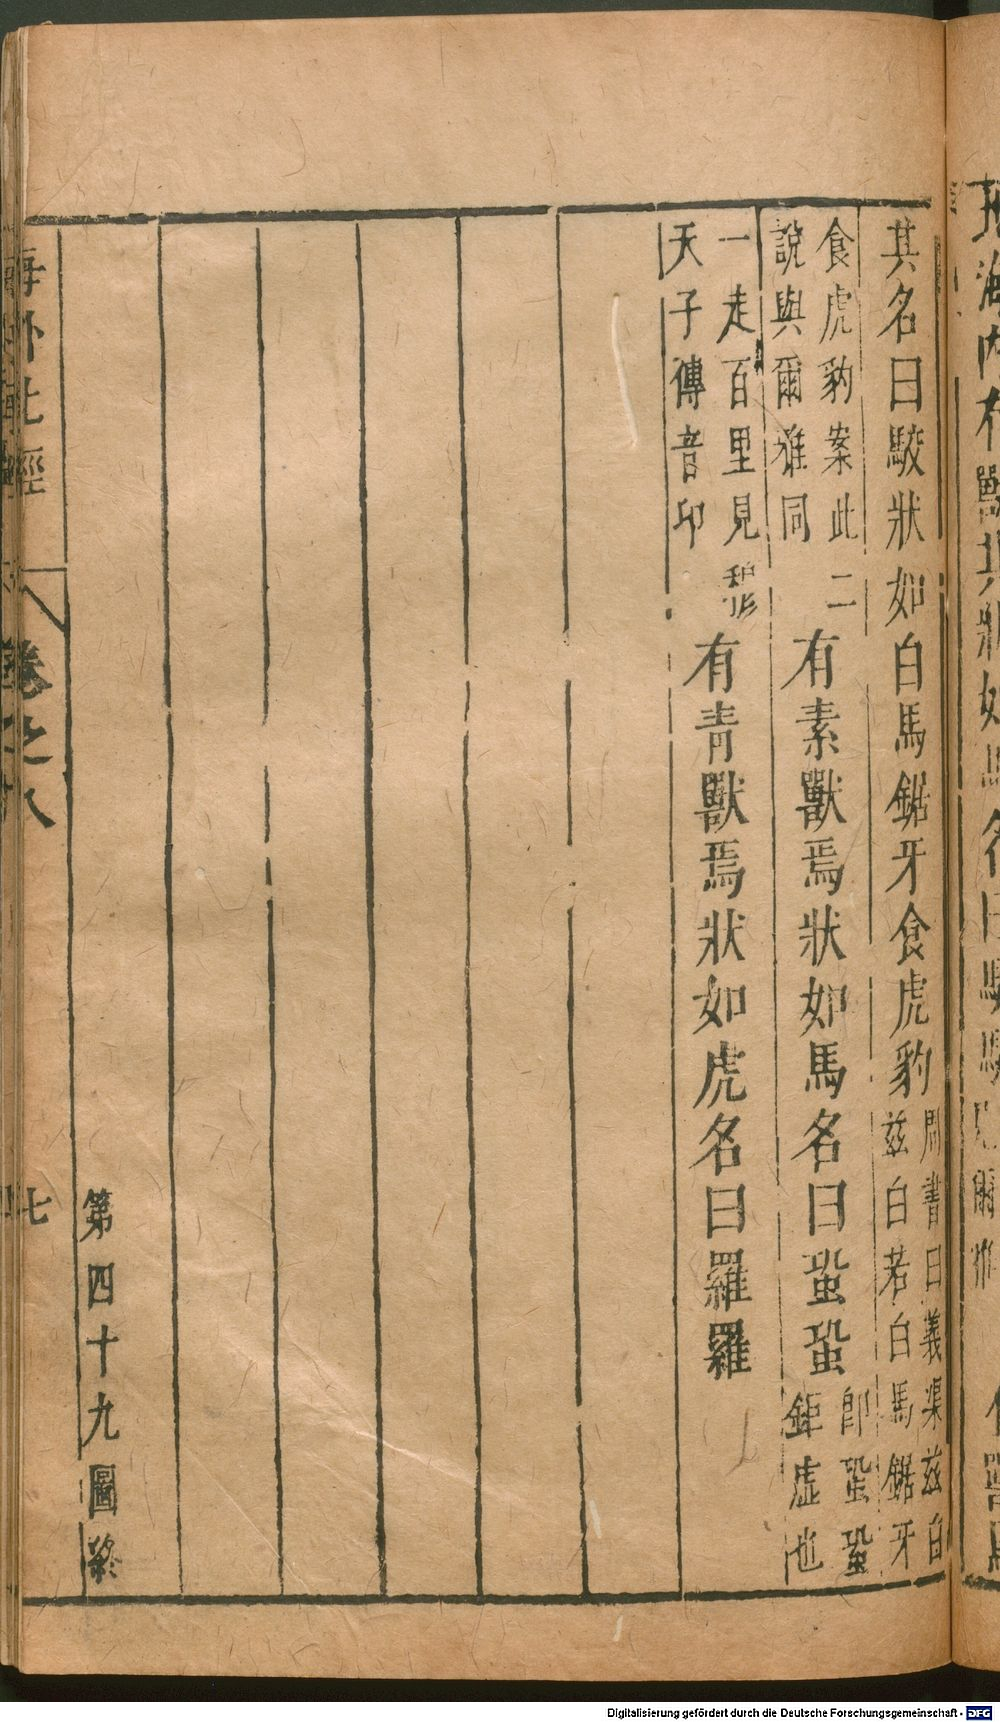 海內有獸其狀如馬名曰
其名曰駮狀如白馬鋸牙食虎豹
周書曰義渠兹白
兹白若白馬鋸牙
食虎豹案此二
說與爾雅同
有素獸焉狀如馬名曰蛩蛩
即蛩蛩
鉅虛也
一走百里見穆
天子傳音邛
有青獸焉狀如虎名曰羅羅
第四十九圖終
海外北經 卷之八 七
Digitalisierung gefördert durch die Deutsche Forschungsgemeinschaft - DFG